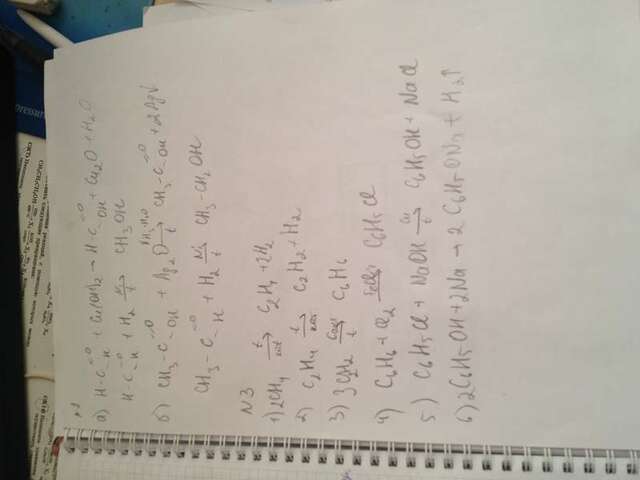 а) H-C=O-H + Cu(OH)2 → H-C=O-OH + Cu2O + H2O
H-C=O-H + H2 Ni→t CH3OH
б) CH3-C=O-OH + Ag2O NH3·H2O→t CH3-C=O-OH + 2Ag↓
CH3-C=O-H + H2 Ni→t CH3-CH2OH
N3
1) 2CH4 t→кат C2H4 + 2H2
2) C2H4 t→кат C2H2 + H2
3) 3C2H2 Cакт→t C6H6
4) C6H6 + Cl2 FeCl3→ C6H5Cl
5) C6H5Cl + NaOH Cu→t C6H5OH + NaCl
6) 2C6H5OH + 2Na → 2C6H5ONa + H2↑